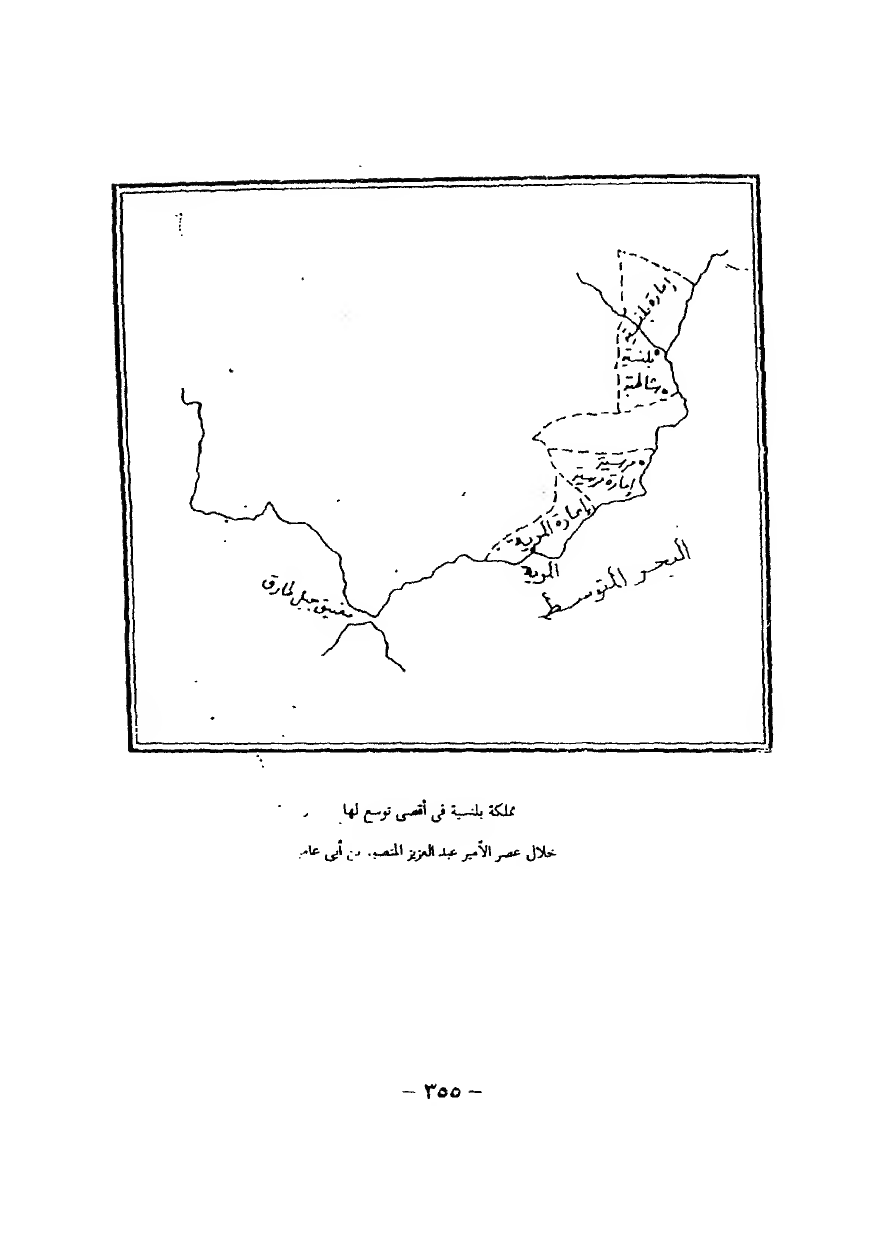 إمارة بلنسية
بلنسية
شاطبة
مرسية
إمارة مرسية
إمارة المرية
المرية
البحر المتوسط
مضيق جبل طارق
مملكة بلنسية في أقصى توسع لها
خلال عصر الأمير عبد العزيز بن أبي
- ٣٥٥ -